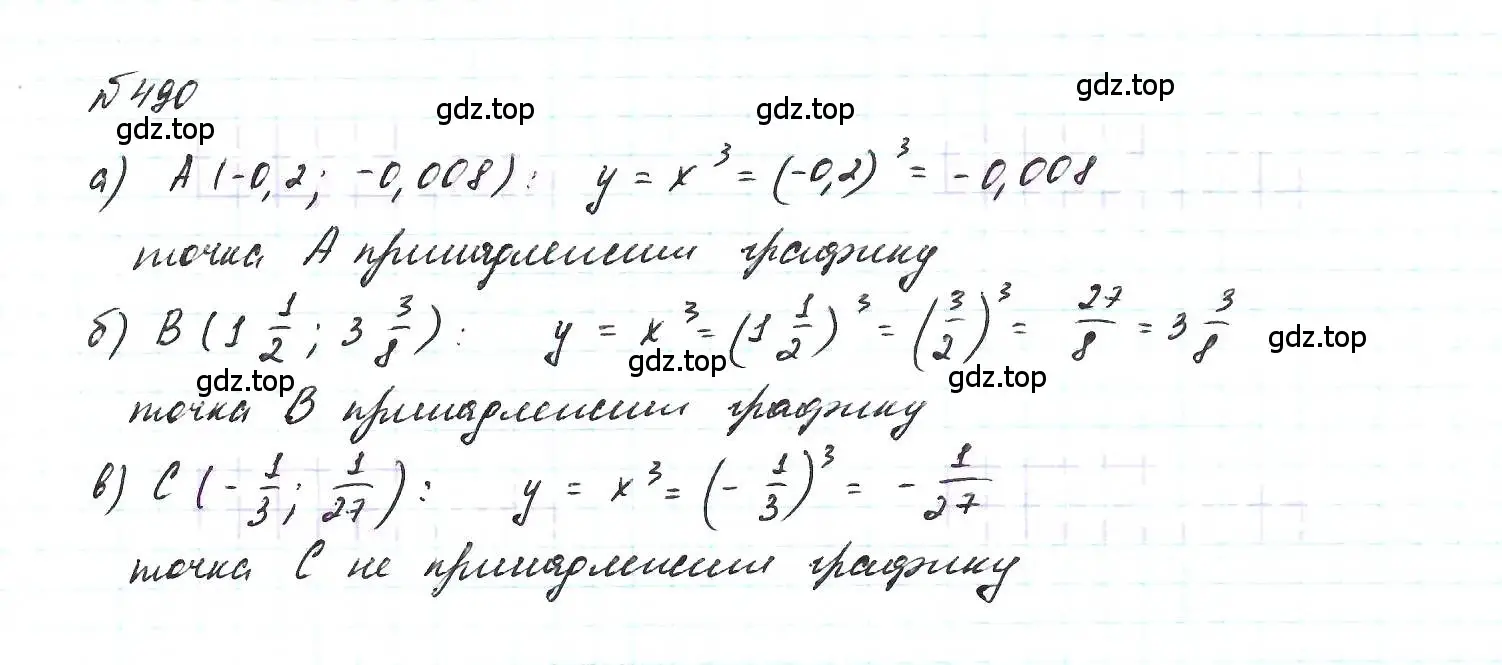 №490
gdz.top gdz.top gdz.top gdz.top
а) A (-0,2; -0,008): y = x³ = (-0,2)³ = -0,008
точка A принадлежит графику
б) B (1 1/2; 3 3/8): y = x³ = (1 1/2)³ = (3/2)³ = 27/8 = 3 3/8
gdz.top gdz.top gdz.top gdz.top
точка B принадлежит графику
в) C (-1/3; 1/27): y = x³ = (-1/3)³ = -1/27
точка C не принадлежит графику